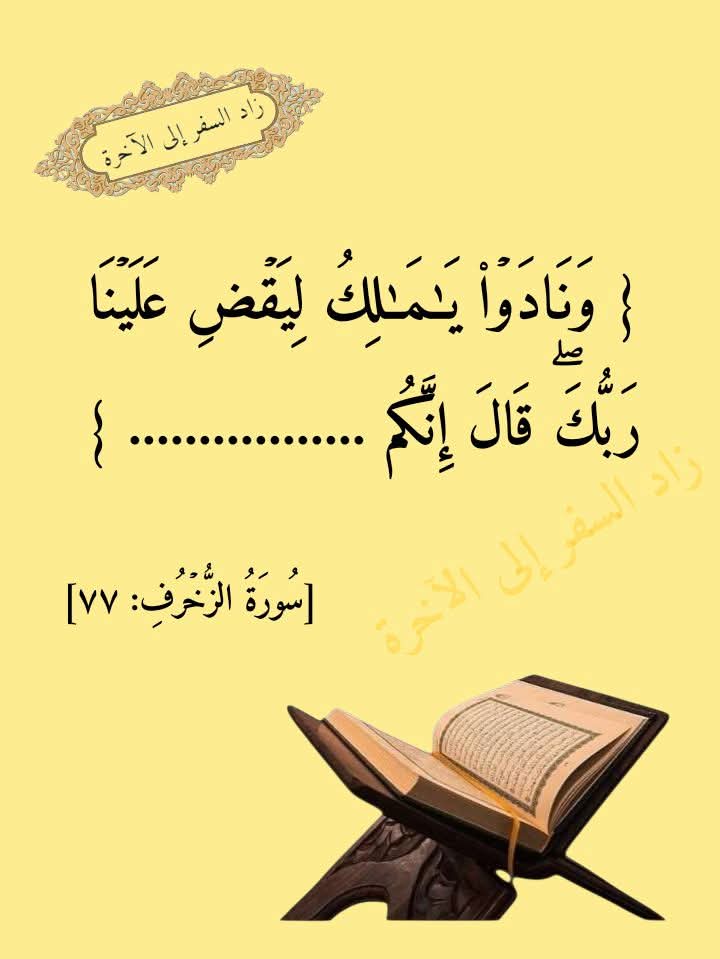 زاد السفر إلى الآخرة
{ وَنَادَوۡاْ يَـٰمَـٰلِكُ لِيَقۡضِ عَلَيۡنَا
رَبُّكَۖ قَالَ إِنَّكُم ................. }
زاد السفر إلى الآخرة
[سُورَةُ الزُّخۡرُفِ: ٧٧]